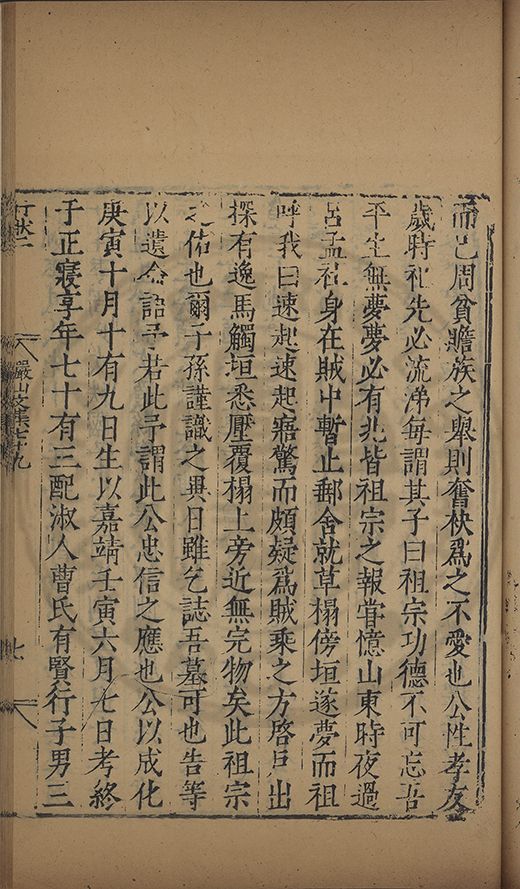 而已周貧贍族之舉則奮袂爲之不愛也公性孝友
歲時祀先必流涕每謂其子曰祖宗功德不可忘吾
平生無夢夢必有兆皆祖宗之報嘗憶山東時夜過
呂孟社身在賊中暫止郵舍就草榻傍垣遂夢而祖
呼我曰速起速起寤驚而頗疑爲賊乘之方啓戶出
探有逸馬觸垣悉壓覆榻上旁近無完物矣此祖宗
之佑也爾子孫謹識之異日雖乞誌吾墓可也告等
以遺命語予若此予謂此公忠信之應也公以成化
庚寅十月十有九日生以嘉靖壬寅六月七日考終
于正寢享年七十有三配淑人曹氏有賢行子男三
行狀
儼山文集七九
七